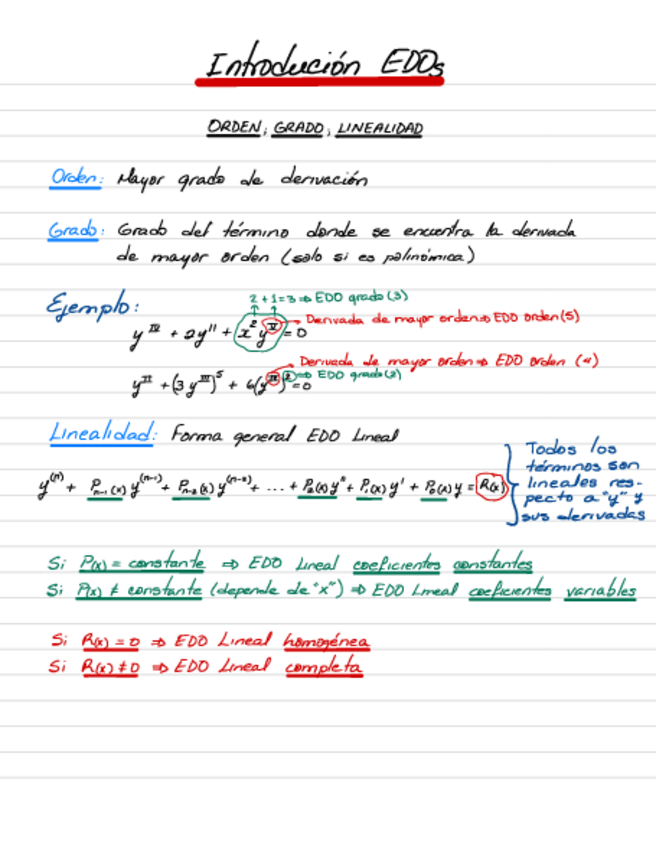 Introdución EDOs
ORDEN, GRADO, LINEALIDAD
Orden: Mayor grado de derivación
Grado: Grado del término donde se encuentra la derivada
de mayor orden (solo si es polinómica)
Ejemplo:
2+1=3 ⇒ EDO grado (3)
Derivada de mayor orden ⇒ EDO orden (5)
y^IV + 2y'' + x²y^V = 0
Derivada de mayor orden ⇒ EDO orden (4)
⇒ EDO grado (2)
y^II + (3y^III)^5 + 6(y^IV)^2 = 0
Linealidad: Forma general EDO Lineal
y^(n) + P_{n-1}(x) y^(n-1) + P_{n-2}(x) y^(n-2) + ... + P_2(x) y'' + P_1(x) y' + P_0(x) y = R(x)
Todos los
términos son
lineales res-
pecto a "y" y
sus derivadas
Si P(x) = constante ⇒ EDO Lineal coeficientes constantes
Si P(x) ≠ constante (depende de "x") ⇒ EDO Lineal coeficientes variables
Si R(x) = 0 ⇒ EDO Lineal homogénea
Si R(x) ≠ 0 ⇒ EDO Lineal completa